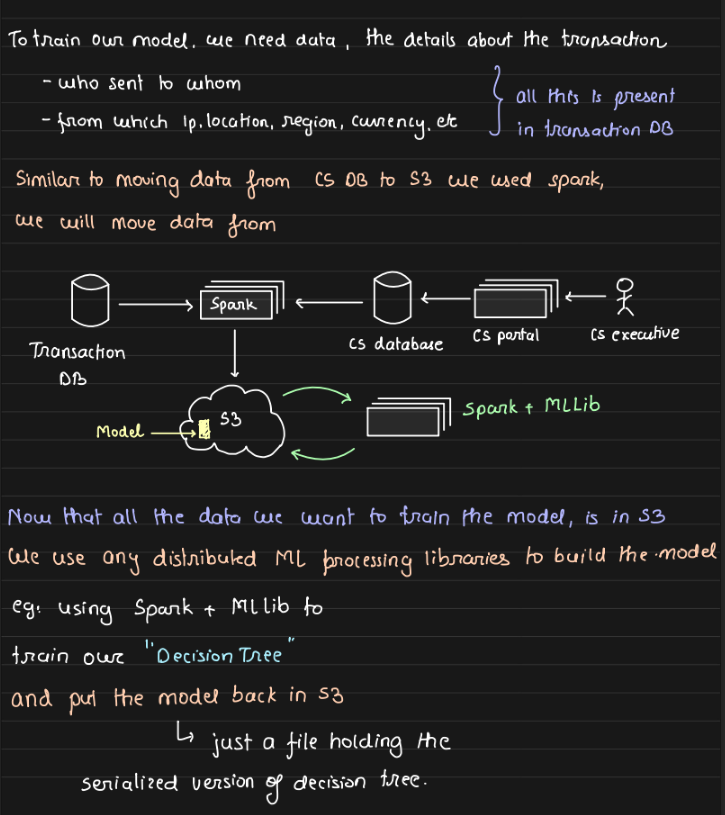 To train our model, we need data, the details about the transaction
- who sent to whom
- from which ip, location, region, currency, etc
all this is present
in transaction DB
Similar to moving data from CS DB to S3 we used spark,
we will move data from
Spark
Transaction
DB
CS database
CS portal
CS executive
S3
Model
Spark + MLLib
Now that all the data we want to train the model, is in S3
We use any distributed ML processing libraries to build the model
eg. using Spark + MLlib to
train our "Decision Tree"
and put the model back in S3
just a file holding the
serialized version of decision tree.